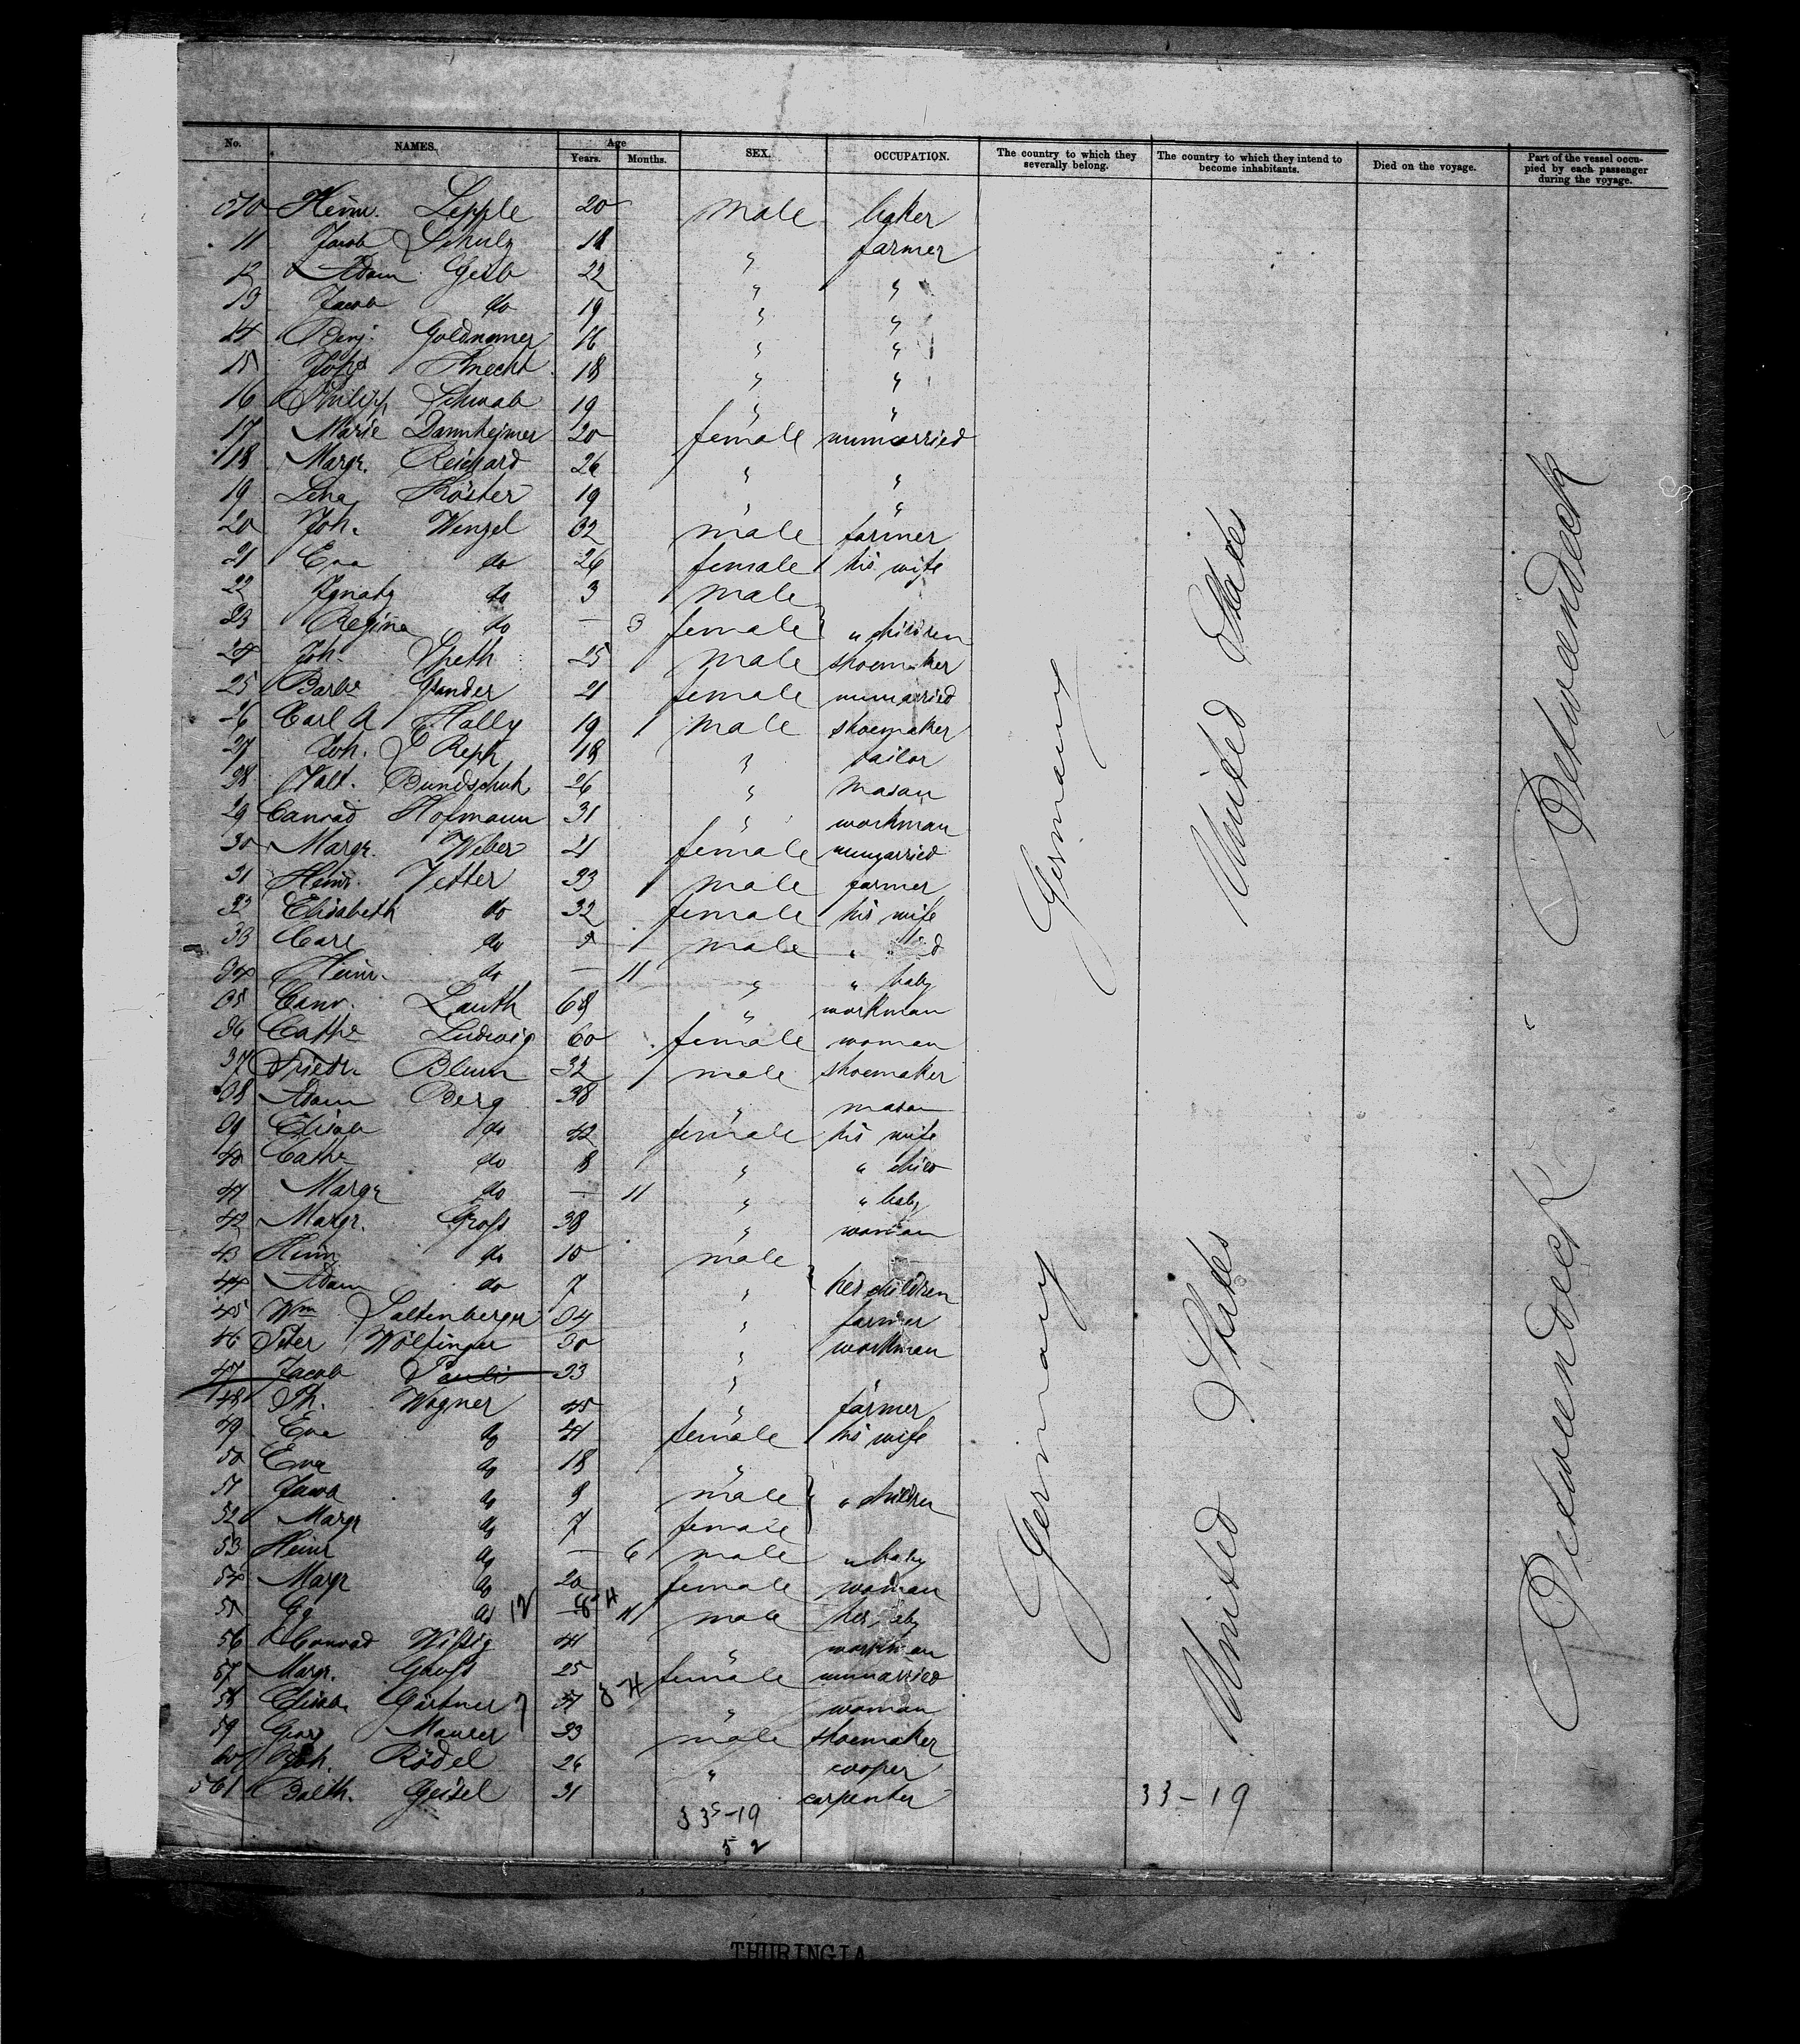 No. NAMES. Age Years. Months. SEX. OCCUPATION. The country to which they severally belong. The country to which they intend to become inhabitants. Died on the voyage. Part of the vessel occupied by each passenger during the voyage.
510 Heinr. Lepple 20 male baker
11 Jacob Schulz 18 " farmer
12 Adam Geib 22 " "
13 Jacob do 19 " "
14 Benj. 16 " "
15 Joh. Knecht 18 " "
16 Philipp Schwab 19 " "
17 Marie Dannheimer 20 female unmarried
18 Margr. Reichard 26 " "
19 Lena Köster 19 " "
20 Joh. Wenzel 32 male farmer
21 Eva do 26 female his wife
22 Ignatz do 3 male
23 Regina do — 3 female " children
24 Joh. Speth 25 male shoemaker
25 Barbr 21 female unmarried
26 Carl A 19 male shoemaker
27 Joh. 18 " tailor
28 Valt. Bundschuh 26 " mason
29 Conrad Hofmann 31 " workman
30 Margr. Weber 21 female unmarried
31 Heinr. Vetter 33 male farmer
32 Elisabeth do 32 female his wife
33 Carl do 5 male "
34 Heinr. do — 11 " " baby
35 Conr. Lauth 68 " workman
36 Cathr Ludwig 60 female woman
37 Friedr Blum 32 male shoemaker
38 Adam Berg 38 " mason
39 Elisab do 42 female his wife
40 Cathr do 8 " " child
41 Margr do — 11 " " baby
42 Margr. Groß 38 " woman
43 Heinr do 10 male
44 Adam do 7 " her children
45 Wm Saltenberger 34 " farmer
46 Peter Wölfinger 30 " workman
47 Jacob Pauli 33 " "
48 Ph. Wagner 45 " farmer
49 Eva do 41 female his wife
50 Eva do 18 "
51 Jacob do 9 male " children
52 Margr do 7 female
53 Heinr do — 6 male " baby
54 Margr do 20 female woman
55 Gg do 12 — 11 male her baby
56 Conrad Wittig 41 " workman
57 Margr. 25 female unmarried
58 Elisab. Gärtner 51 " woman
59 Georg Maurer 33 male shoemaker
60 Joh. Rödel 26 " cooper
561 Balth. Geisel 31 carpenter
33-19
52
33-19
Germany
Germany
United States
United States
Betweendeck
Betweendeck
THURINGIA